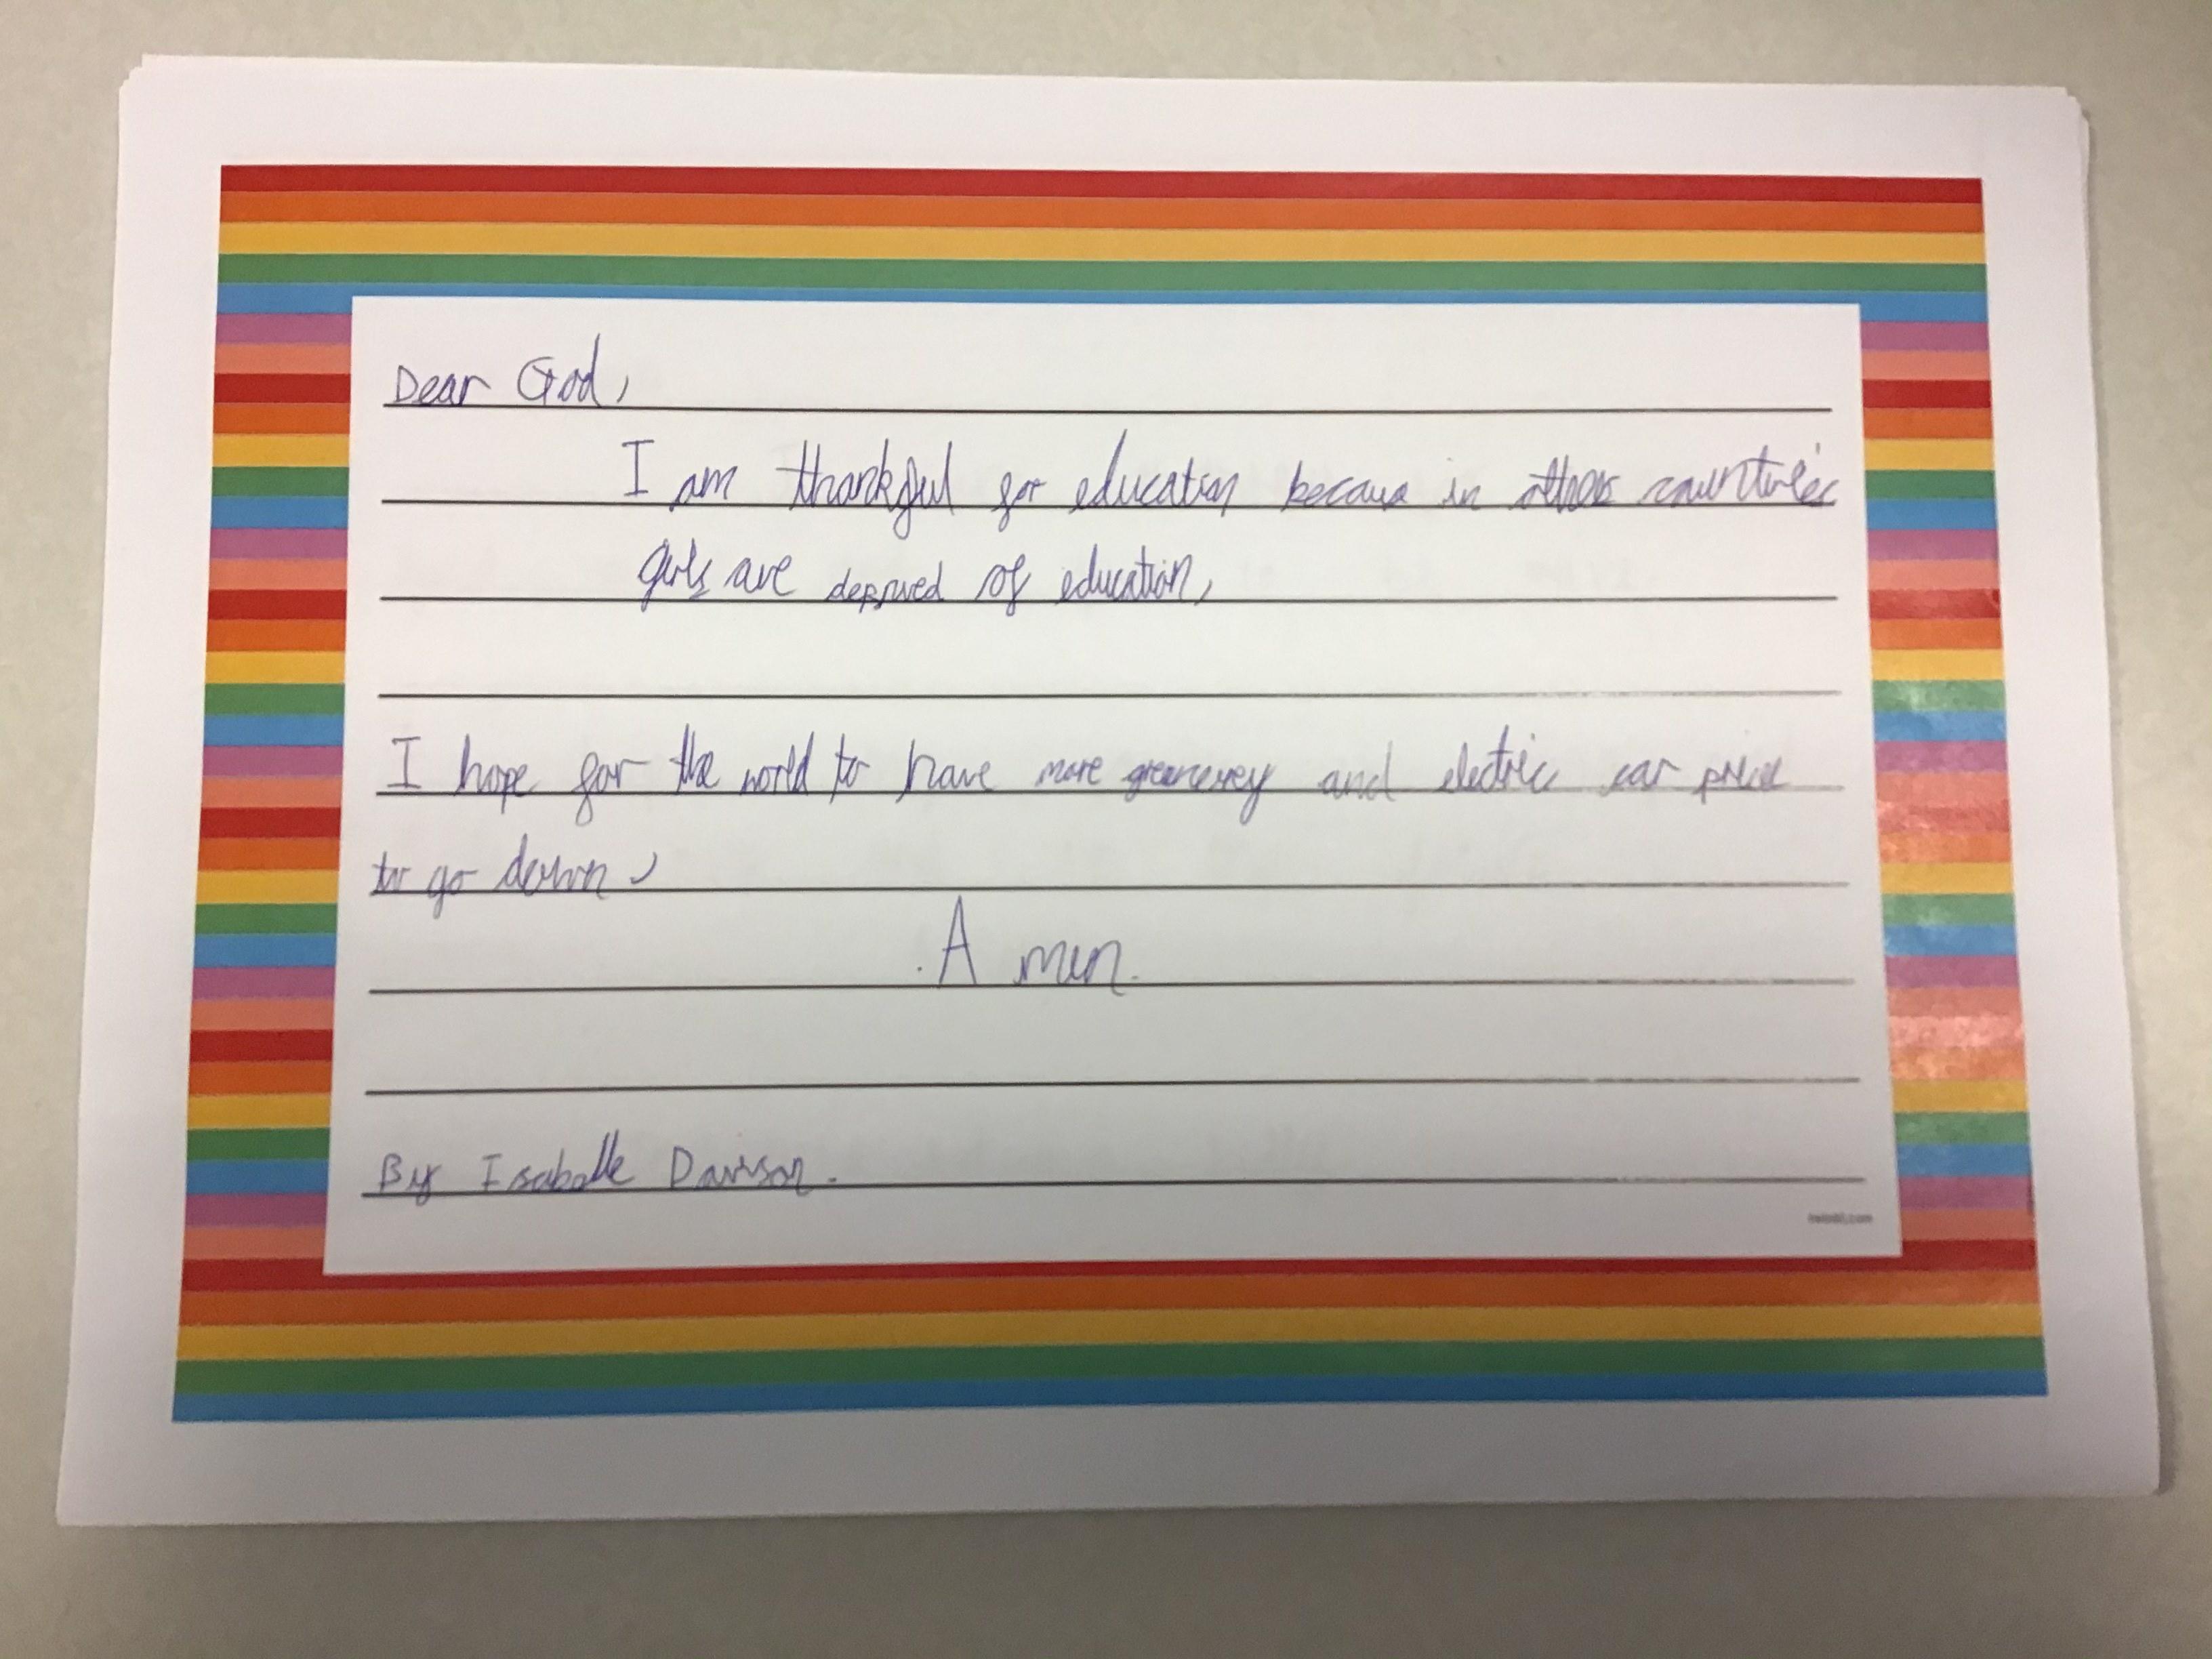 Dear God,
I am thankful for education because in other countries
girls are deprived of education,
I hope for the world to have more greenerey and electric car price
to go down,
A men.
By Isabelle Davison.
twinkl.com